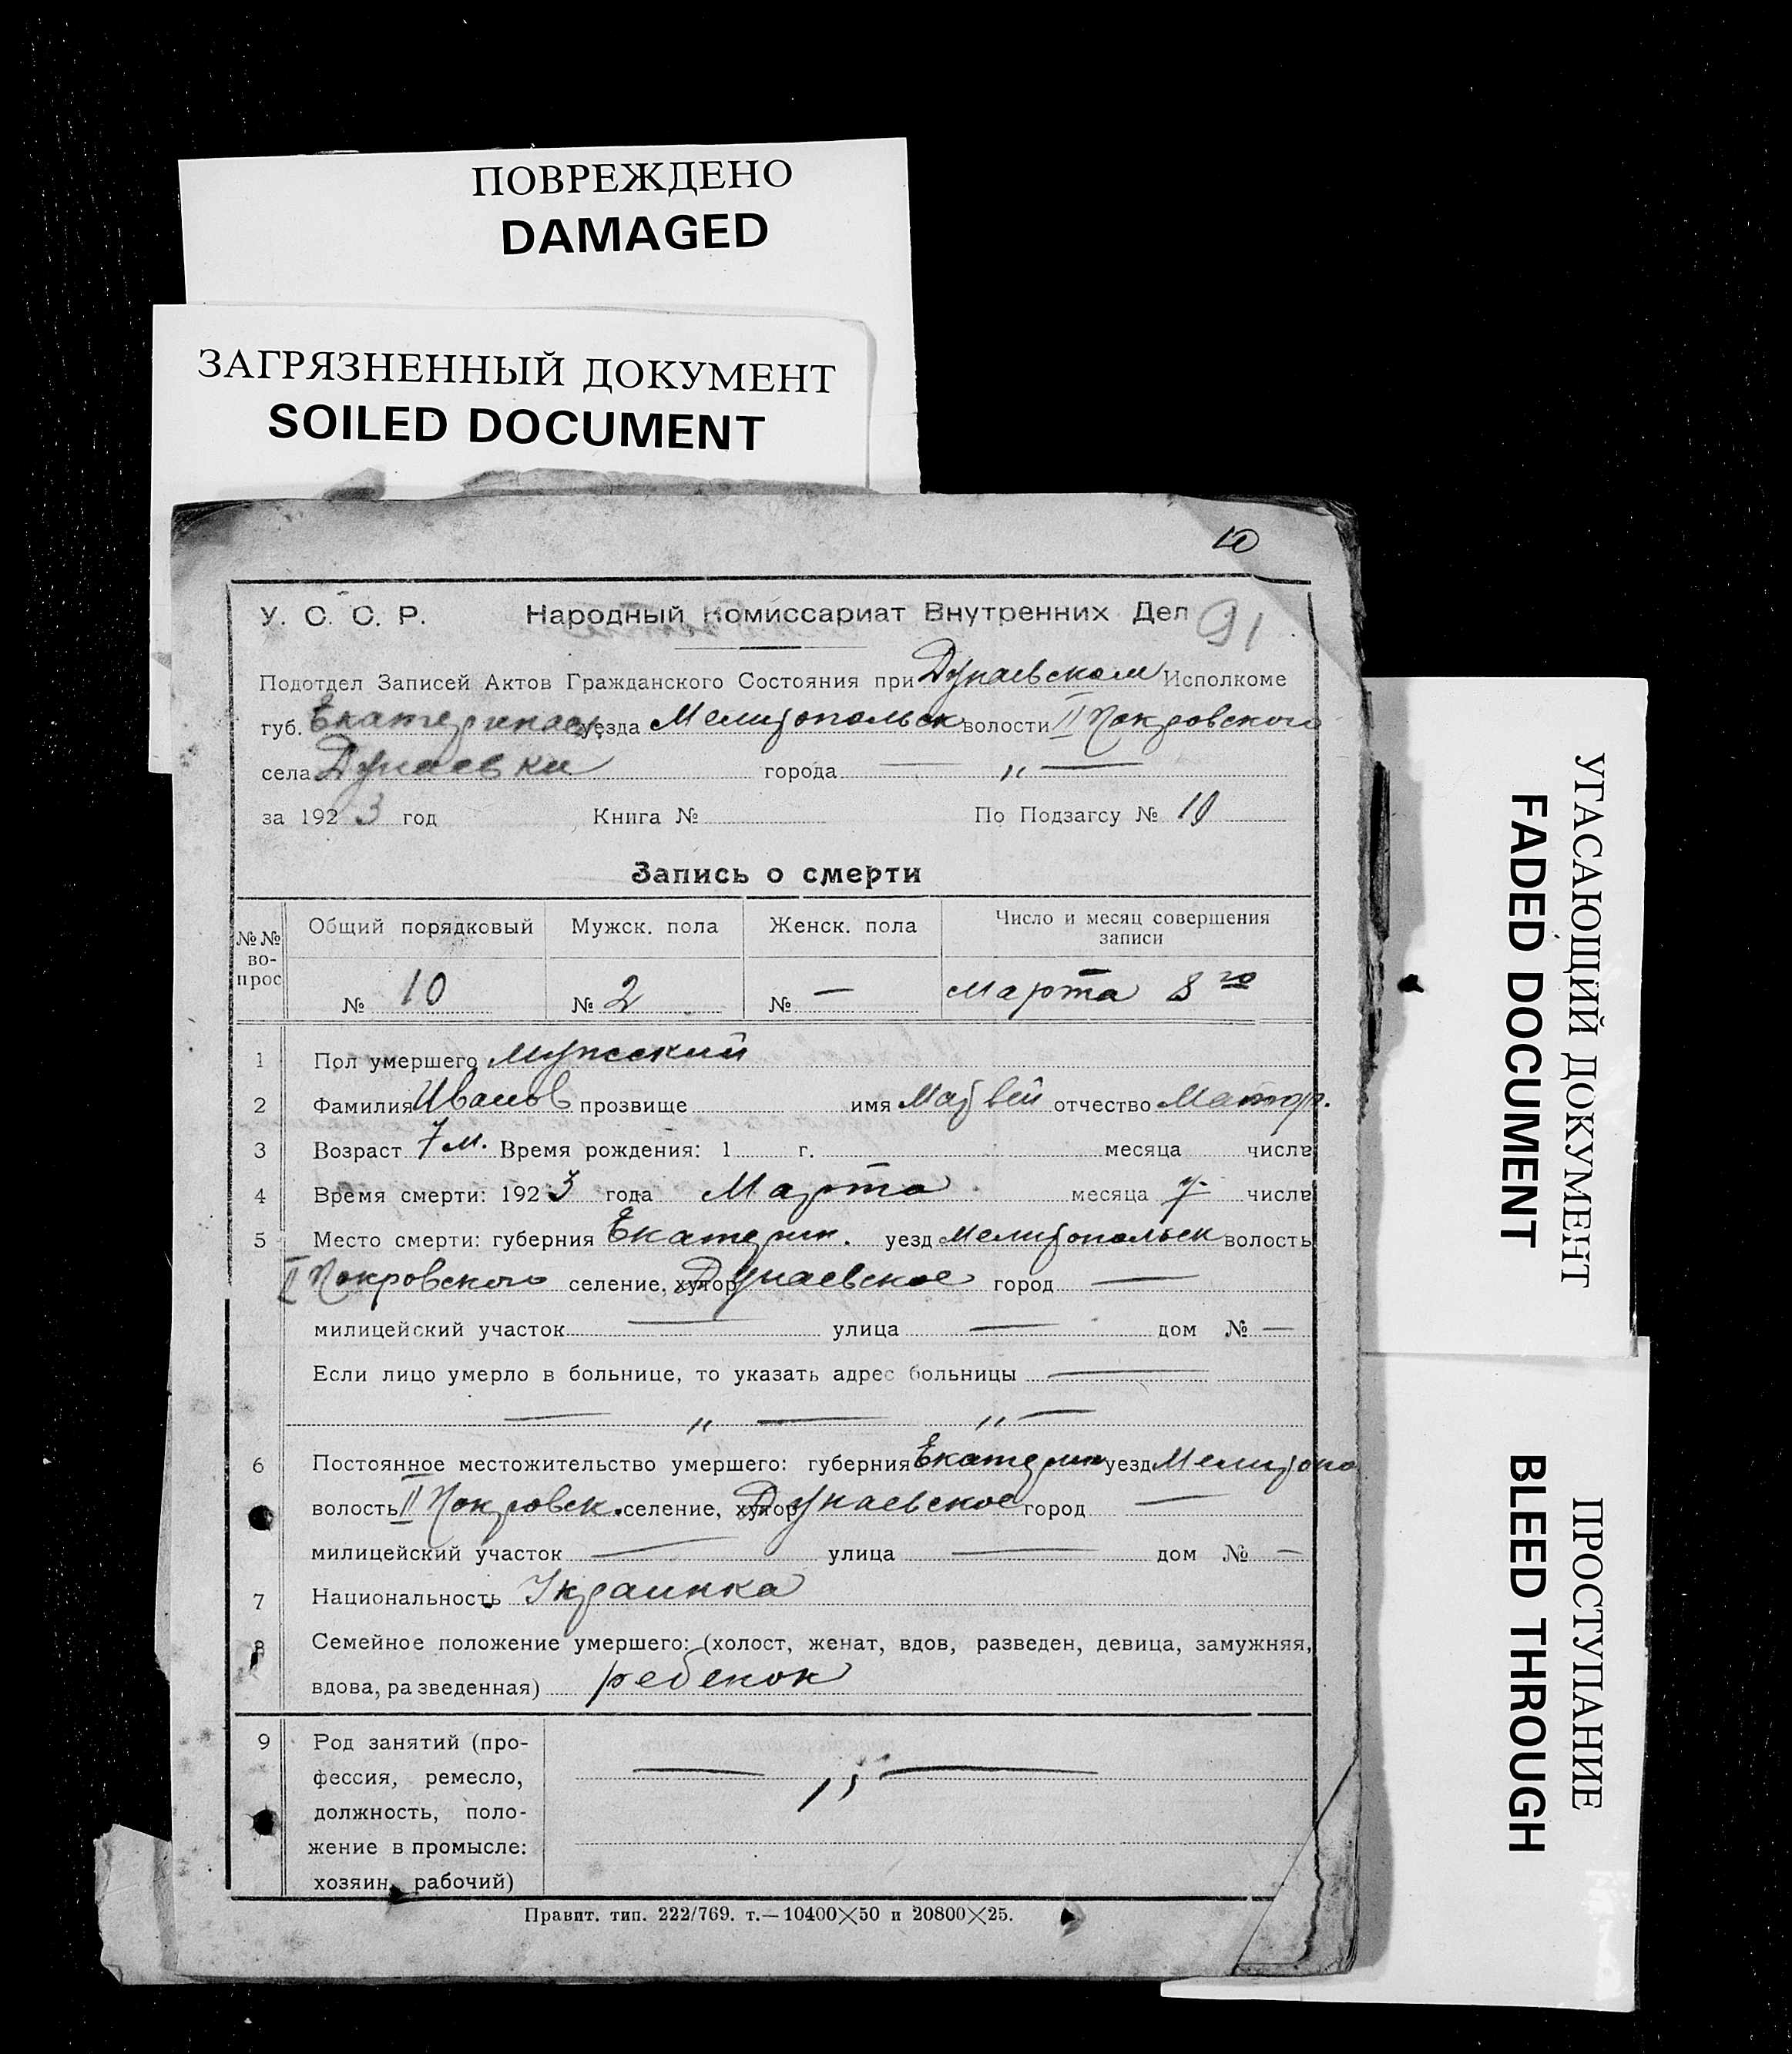 ПОВРЕЖДЕНО
DAMAGED
ЗАГРЯЗНЕННЫЙ ДОКУМЕНТ
SOILED DOCUMENT
10
У. С. С. Р. Народный Комиссариат Внутренних Дел 91
Подотдел Записей Актов Гражданского Состояния при Дунаевском Исполкоме
губ. Екатеринос. уезда Мелитопольск волости II Покровского
села Дунаевки города — „ —
за 1923 год Книга № По Подзагсу № 10
Запись о смерти
№№ вопрос Общий порядковый Мужск. пола Женск. пола Число и месяц совершения записи
№ 10 № 2 № — Марта 8го
1 Пол умершего Мужский
2 Фамилия Иванов прозвище имя Матвей отчество
3 Возраст 7 м. Время рождения: 1 г. месяца числа
4 Время смерти: 1923 года Марта месяца 7 числа
5 Место смерти: губерния Екатерин. уезд Мелитопольск волость
II Покровского селение, хутор Дунаевское город —
милицейский участок — улица — дом № —
Если лицо умерло в больнице, то указать адрес больницы —
— „ — „ —
6 Постоянное местожительство умершего: губерния Екатерин уезд Мелитопо
волость II Покровск. селение, хутор Дунаевское город —
милицейский участок — улица — дом № —
7 Национальность Украинка
8 Семейное положение умершего: (холост, женат, вдов, разведен, девица, замужняя,
вдова, разведенная) ребенок
9 Род занятий (про-
фессия, ремесло, — „ —
должность, поло-
жение в промысле:
хозяин, рабочий)
Правит. тип. 222/769. т.—10400×50 и 20800×25.
УГАСАЮЩИЙ ДОКУМЕНТ
FADED DOCUMENT
ПРОСТУПАНИЕ
BLEED THROUGH